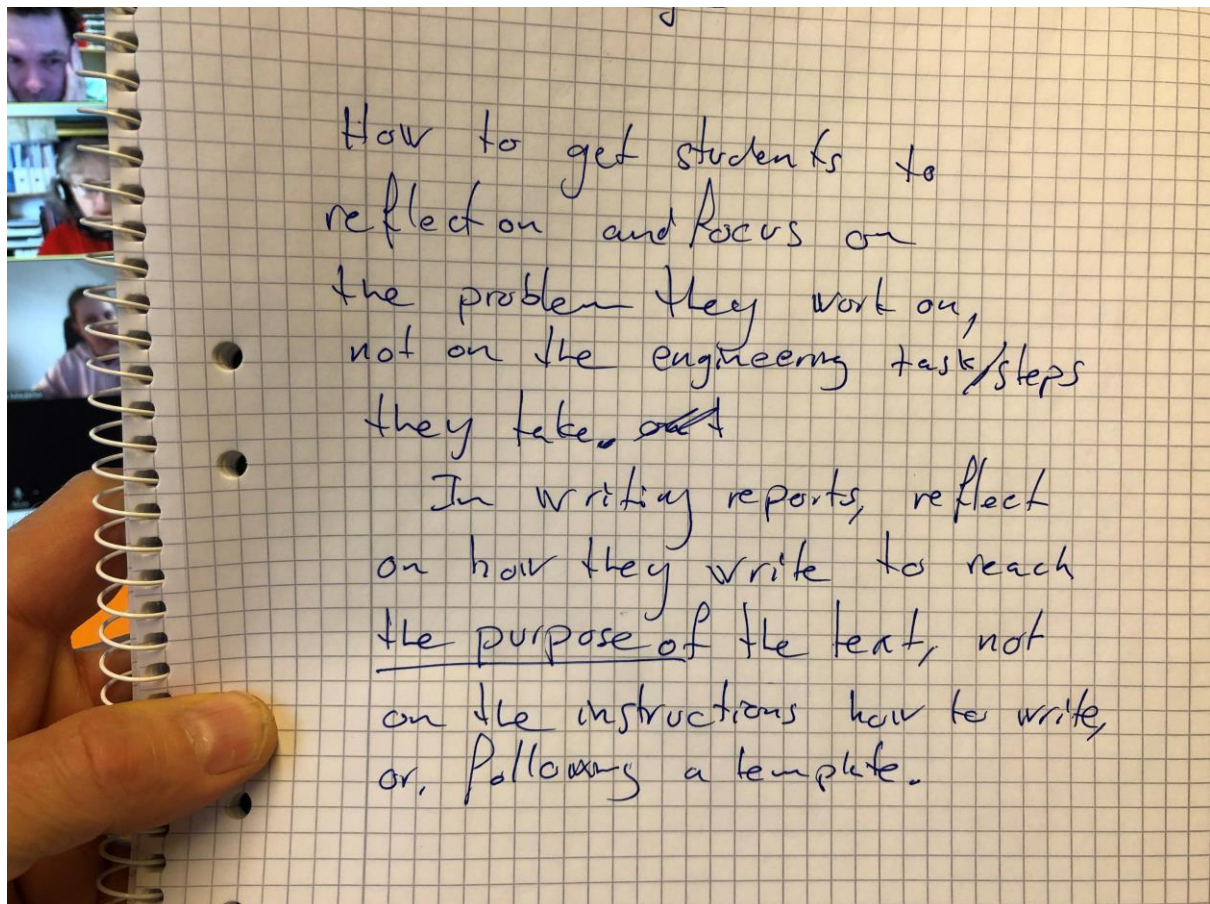 How to get students to
reflect on and focus on
the problem they work on,
not on the engineering task/steps
they take.
In writing reports, reflect
on how they write to reach
the purpose of the text, not
on the instructions how to write,
or, following a template.